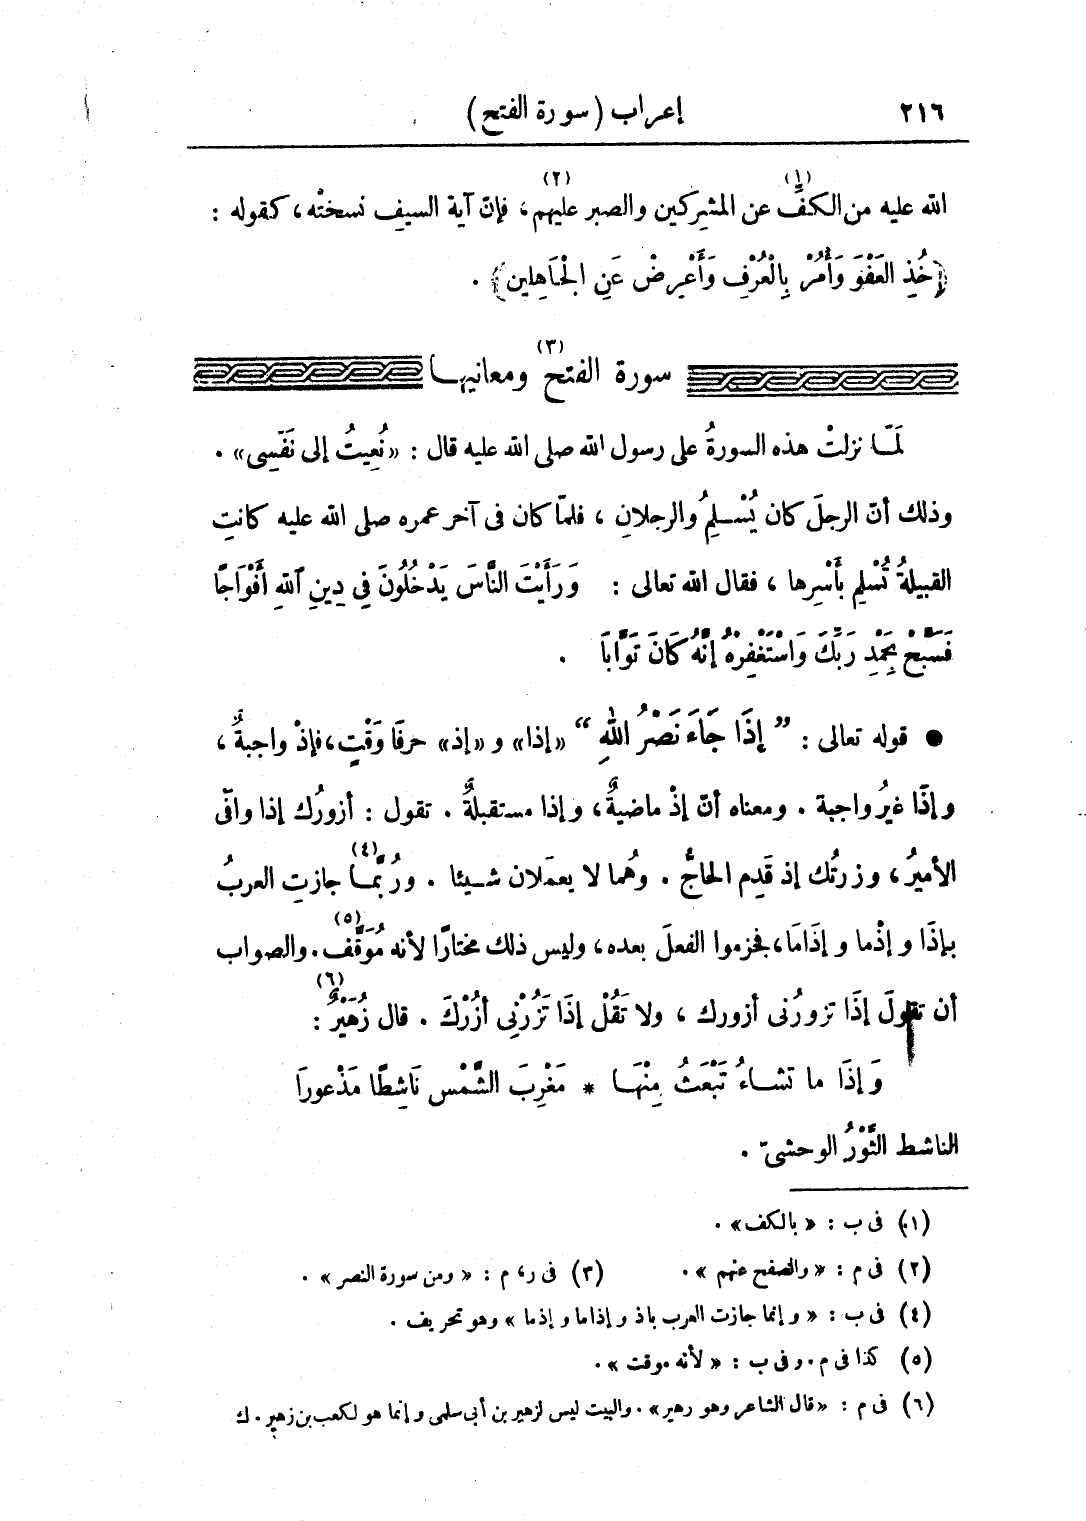 ٢١٦ إعراب (سورة الفتح)
الله عليه من الكفِّ(١) عن المشركين والصبر عليهم(٢)، فإنّ آية السيف نسختْه، كقوله :
﴿خُذِ العَفْوَ وَأْمُرْ بِالْعُرْفِ وَأَعْرِضْ عَنِ الْجَاهِلِين﴾ .
سورة الفتح(٣) ومعانيها
لَمّا نزلتْ هذه السورةُ على رسول الله صلى الله عليه قال : «نُعِيتُ إلى نَفْسِى» .
وذلك أنّ الرجلَ كان يُسْلِمُ والرجلانِ ، فلمّا كان فى آخر عمره صلى الله عليه كانتِ
القبيلةُ تُسْلِم بأَسْرِها ، فقال الله تعالى : وَرَأَيْتَ النَّاسَ يَدْخُلُونَ فِي دِينِ ٱللهِ أَفْوَاجًا
فَسَبِّحْ بِحَمْدِ رَبِّكَ وَاسْتَغْفِرْهُ إِنَّهُ كَانَ تَوَّابَا .
● قوله تعالى : ” إِذَا جَاءَ نَصْرُ اللهِ “ «إذا» و «إذ» حرفَا وَقْتٍ، فإذْ واجبةٌ ،
وإذَا غيرُ واجبة . ومعناه أنّ إذْ ماضيةٌ، وإذا مستقبلةٌ . تقول : أزورُك إذا وافَى
الأميرُ ، وزرتُك إذ قَدِم الحاجُّ . وهُما لا يعمَلان شيئا . ورُبَّما(٤) جازتِ العربُ
بإذَا و إذْما و إذَامَا، فجزموا الفعلَ بعده، وليس ذلك مختارًا لأنه مُوَقَّف(٥). والصواب
أن تقولَ إذَا تزورُنى أزورك ، ولا تَقُلْ إذَا تَزُرْنِى أزُرْكَ . قال زُهَيْرٌ(٦) :
وَإذَا ما تشاءُ تَبْعَثُ مِنْهَا * مَغْرِبَ الشَّمْس نَاشِطًا مَذْعورَا
الناشط الثَّوْرُ الوحشىّ .
(١) فى ب : «بالكف» .
(٢) فى م : «والصفح عنهم» . (٣) فى ر، م : «ومن سورة النصر» .
(٤) فى ب : «وإنما جازت العرب باذ و إذاما و إذما» وهو تحريف .
(٥) كذا فى م . وفى ب : «لأنه موقت» .
(٦) فى م : «قال الشاعر وهو زهير» . والبيت ليس لزهير بن أبى سلمى وإنما هو لكعب بن زهير . ك